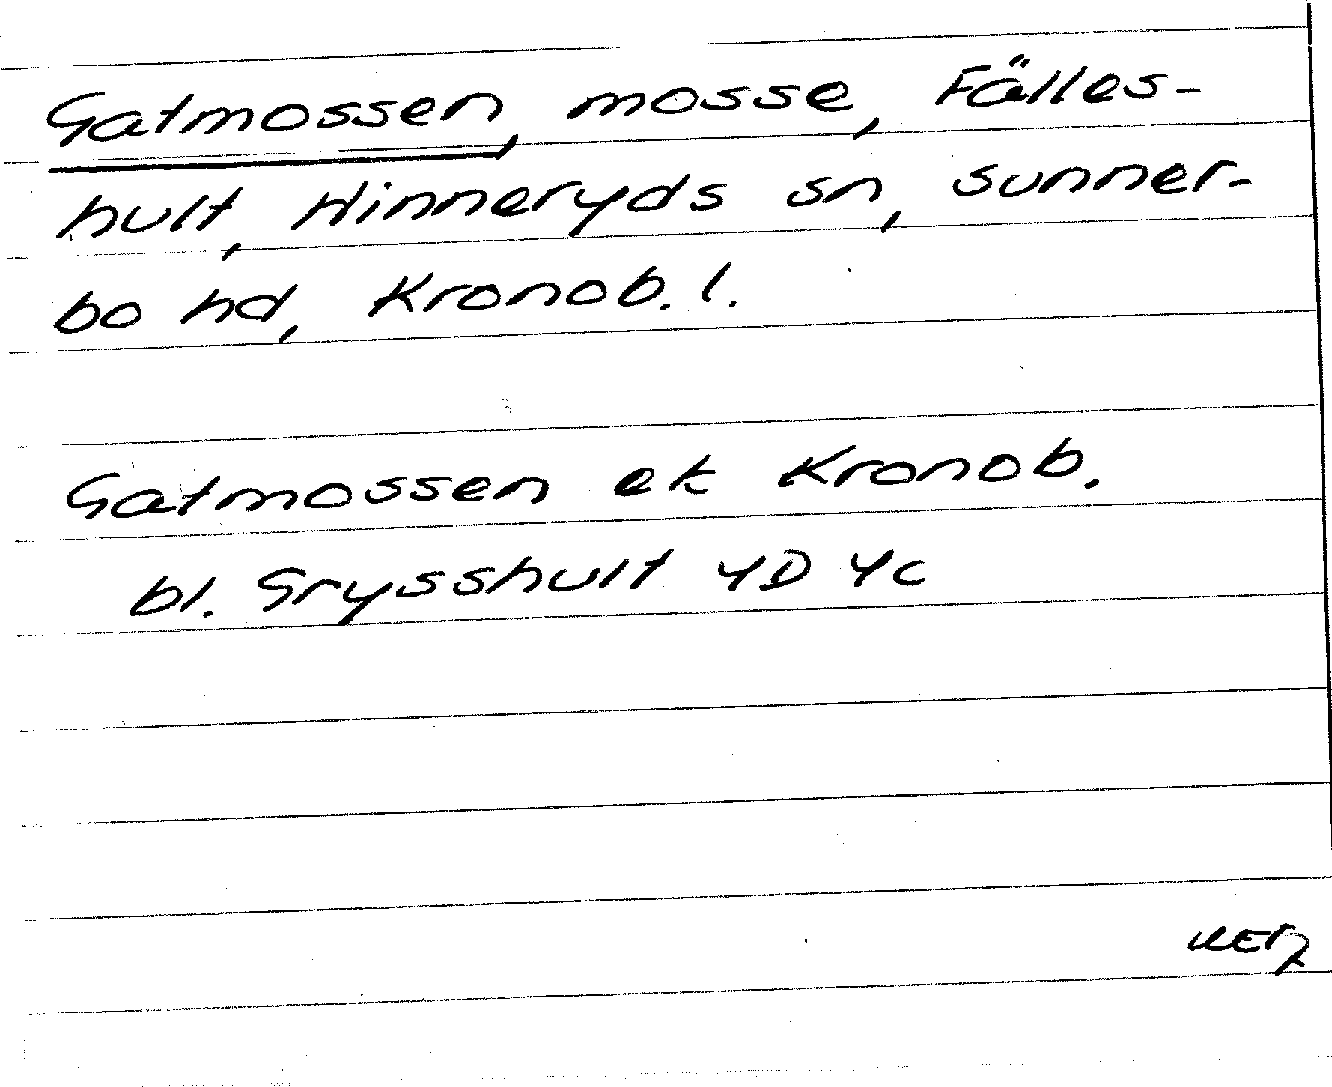 Gatmossen, mosse, Fälles-
hult, Hinneryds sn, Sunner-
bo hd, Kronob. l.
Gatmossen ek Kronob.
bl. Grysshult 4D 4c